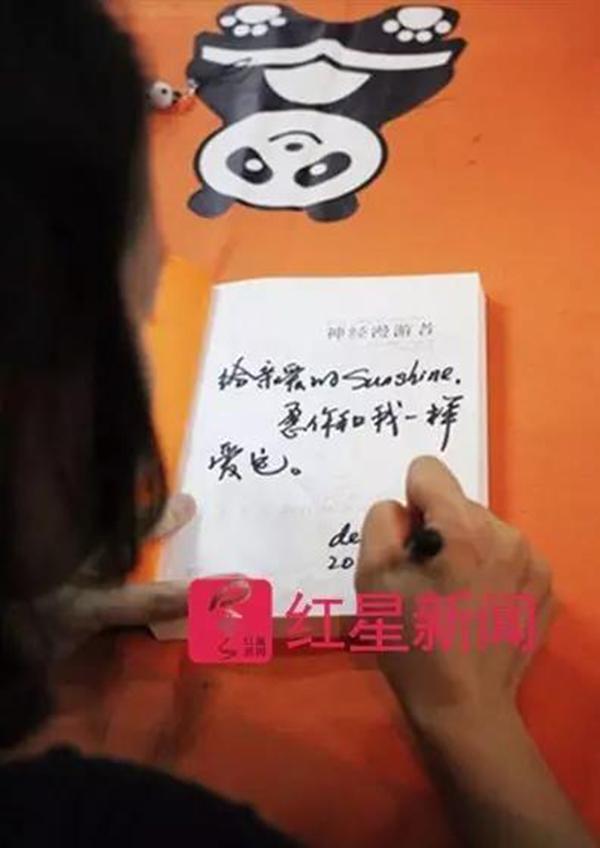 神经漫游者
给亲爱的Sunshine.
愿你和我一样
爱它。
de
20
红星新闻
红星新闻